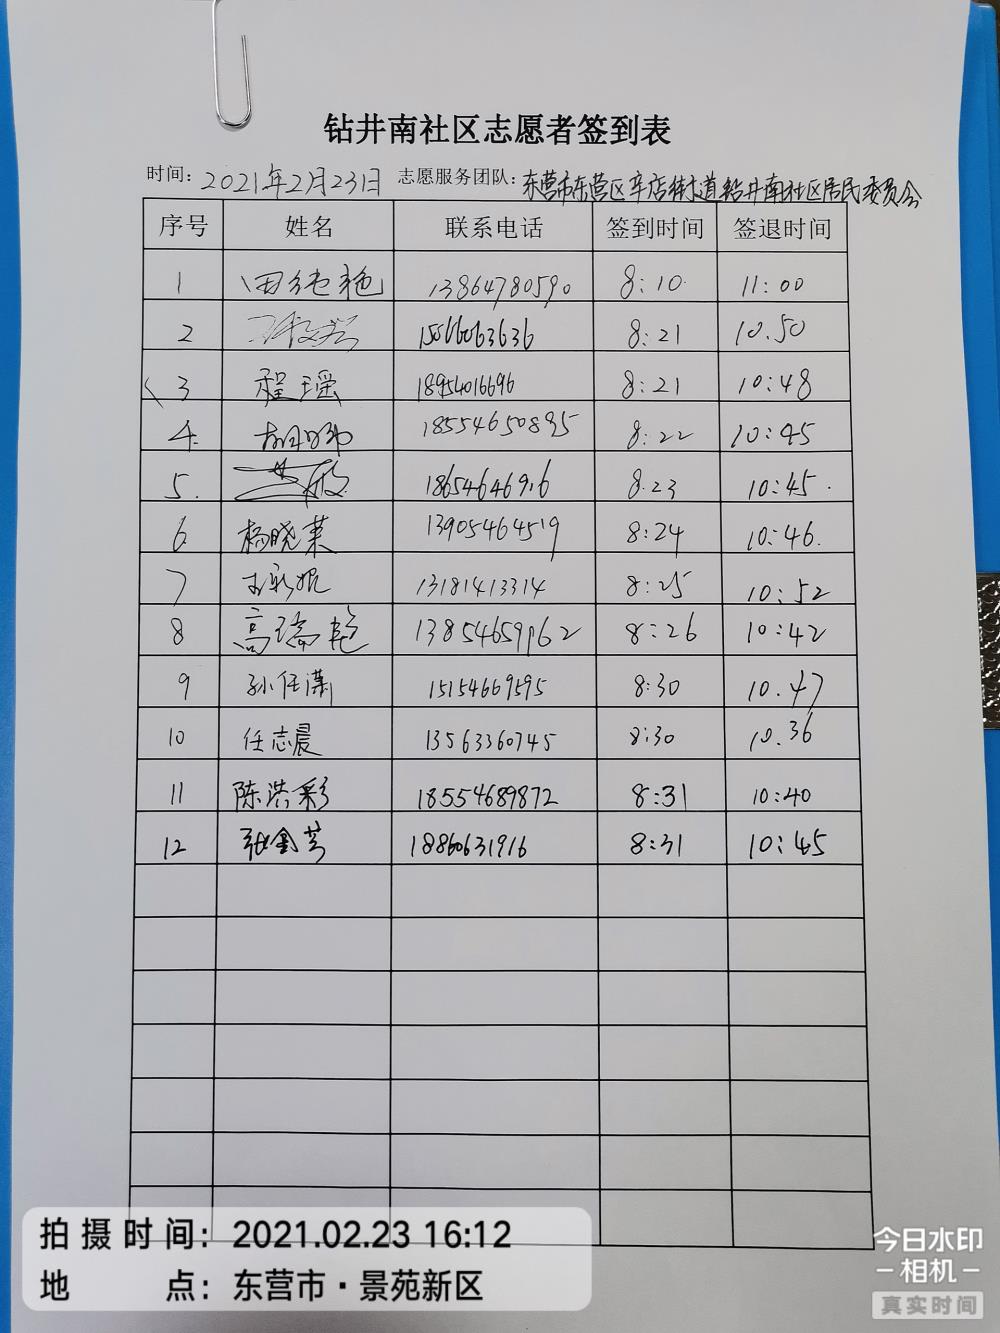 钻井南社区志愿者签到表
时间：2021年2月23日 志愿服务团队：东营市东营区辛店街道钻井南社区居民委员会
序号 姓名 联系电话 签到时间 签退时间
1 田纯艳 13864780590 8:10 11:00
2 15066063636 8:21 10.50
3 程瑶 18954016696 8:21 10:48
4. 胡娜 18554650895 8:22 10:45
5. 18654646916 8.23 10:45.
6 杨晓荣 13905464519 8:24 10:46.
7 13181413314 8:25 10:52
8 高瑞艳 13854659162 8:26 10:42
9 孙任潇 15154669595 8:30 10.47
10 任志晨 13563360745 8:30 10.36
11 陈洪彩 18554689872 8:31 10:40
12 张金芳 18860631916 8:31 10:45
拍摄时间：2021.02.23 16:12
地点：东营市·景苑新区
今日水印
相机
真实时间